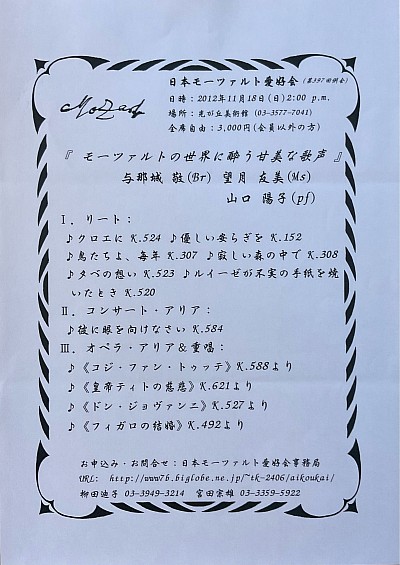 Mozart
日本モーツァルト愛好会 (第397回例会)
日時：2012年11月18日(日)2:00 p.m.
場所：光が丘美術館 (03-3577-7041)
全席自由：3,000円(会員以外の方)
『 モーツァルトの世界に酔う甘美な歌声 』
与那城 敬(Br) 望月 友美(Ms)
山口 陽子(pf)
Ⅰ. リート：
♪クロエに K.524 ♪優しい安らぎを K.152
♪鳥たちよ、毎年 K.307 ♪寂しい森の中で K.308
♪夕べの想い K.523 ♪ルイーゼが不実の手紙を焼
いたとき K.520
Ⅱ. コンサート・アリア：
♪彼に眼を向けなさい K.584
Ⅲ. オペラ・アリア＆重唱：
♪《コジ・ファン・トゥッテ》K.588より
♪《皇帝ティトの慈悲》K.621より
♪《ドン・ジョヴァンニ》K.527より
♪《フィガロの結婚》K.492より
お申込み・お問合せ：日本モーツァルト愛好会事務局
URL: http://www7b.biglobe.ne.jp/~tk-2406/aikoukai/
柳田迪子 03-3949-3214 富田宗雄 03-3359-5922